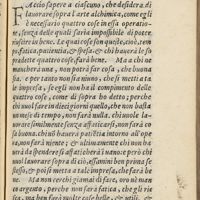 FAccio sapere a ciascuno, che desidera di
lauorare sopra l'arte alchimica, come egli
è necessario quattro cose in essa operatio-
ne, senza delle quali saria impossibile di potere
riuscire in bene. Le quai cose son queste, cioè, tem
po, fatica, patientia, & spesa: & chi hauerà le so
pradette quattro cose, farà bene. Ma a chi ne
mancherà una, non potrà far cosa, che buona
sia. e per tanto non sia niuno, che si metti a tale
impresa, se egli non ha il compimento delle
quattro cose, come di sopra ho detto; perche
chi uuol fare in dieci giorni quello, che non basta
un mezo di tempo, non farà nulla. chi uuole lauo-
rare similmente senza affaticarsi, non farà co
sa buona. chi nò hauerà patiétia intorno all'ope
ra, non farà niente; & ultimamente chi non ha
uerà da spendere si affaticherà indarno; però chi
uuol lauorare sopra di ciò, essamini ben prima se
stesso, & poi si metti a tale impresa, & che farà be
ne. Ma non cerchi giamai di fare, oro nè men
argento, perche non farà fatica, che gli rie
sca, ma ben farà molte cose belle, & utili, &